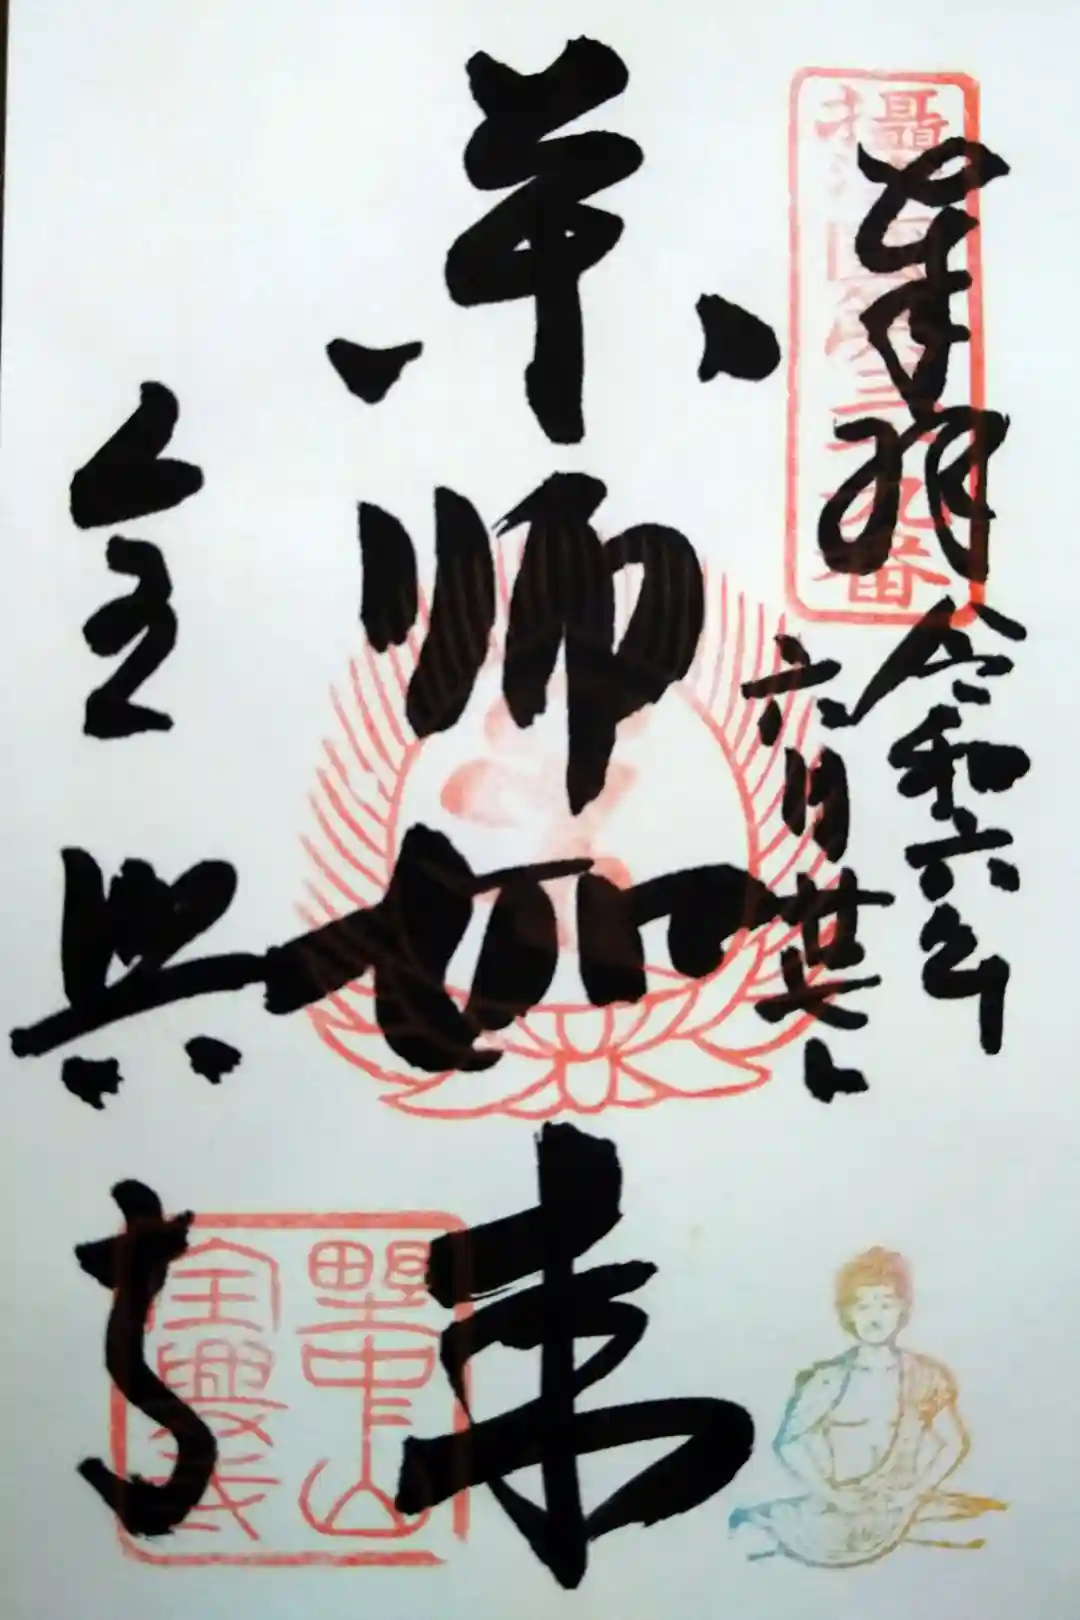 攝津国第三十九番
奉拝
令和六年
六月廿
薬師如来
全興寺
野中山
全興寺